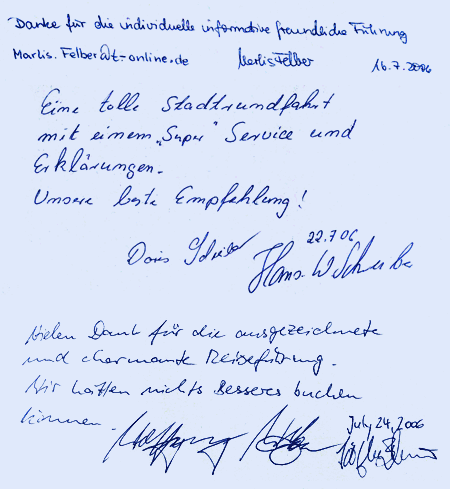 Danke für die individuelle informative freundliche Führung
Marlis.Felber@t-online.de Marlis Felber 16.7.2006
Eine tolle Stadtrundfahrt
mit einem „Super" Service und
Erklärungen.
Unsere beste Empfehlung!
22.7.06
Doris Hans W.
Vielen Dank für die ausgezeichnete
und charmante Reiseführung.
Wir hätten nichts Besseres buchen
können. July 24, 2006